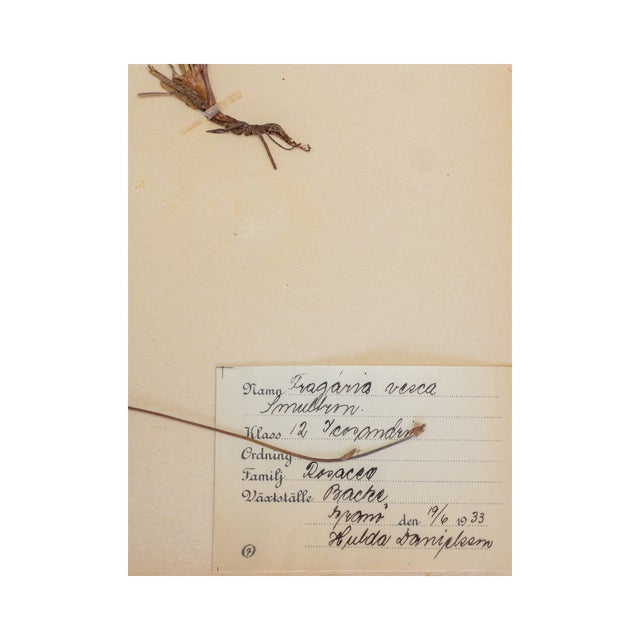 Namn Fragária vesca
Smultron.
Klass 12 Icosandria
Ordning
Familj Rosacee
Växtställe Backe
Granö den 19/6 1933
Hulda Danielsson
(7)